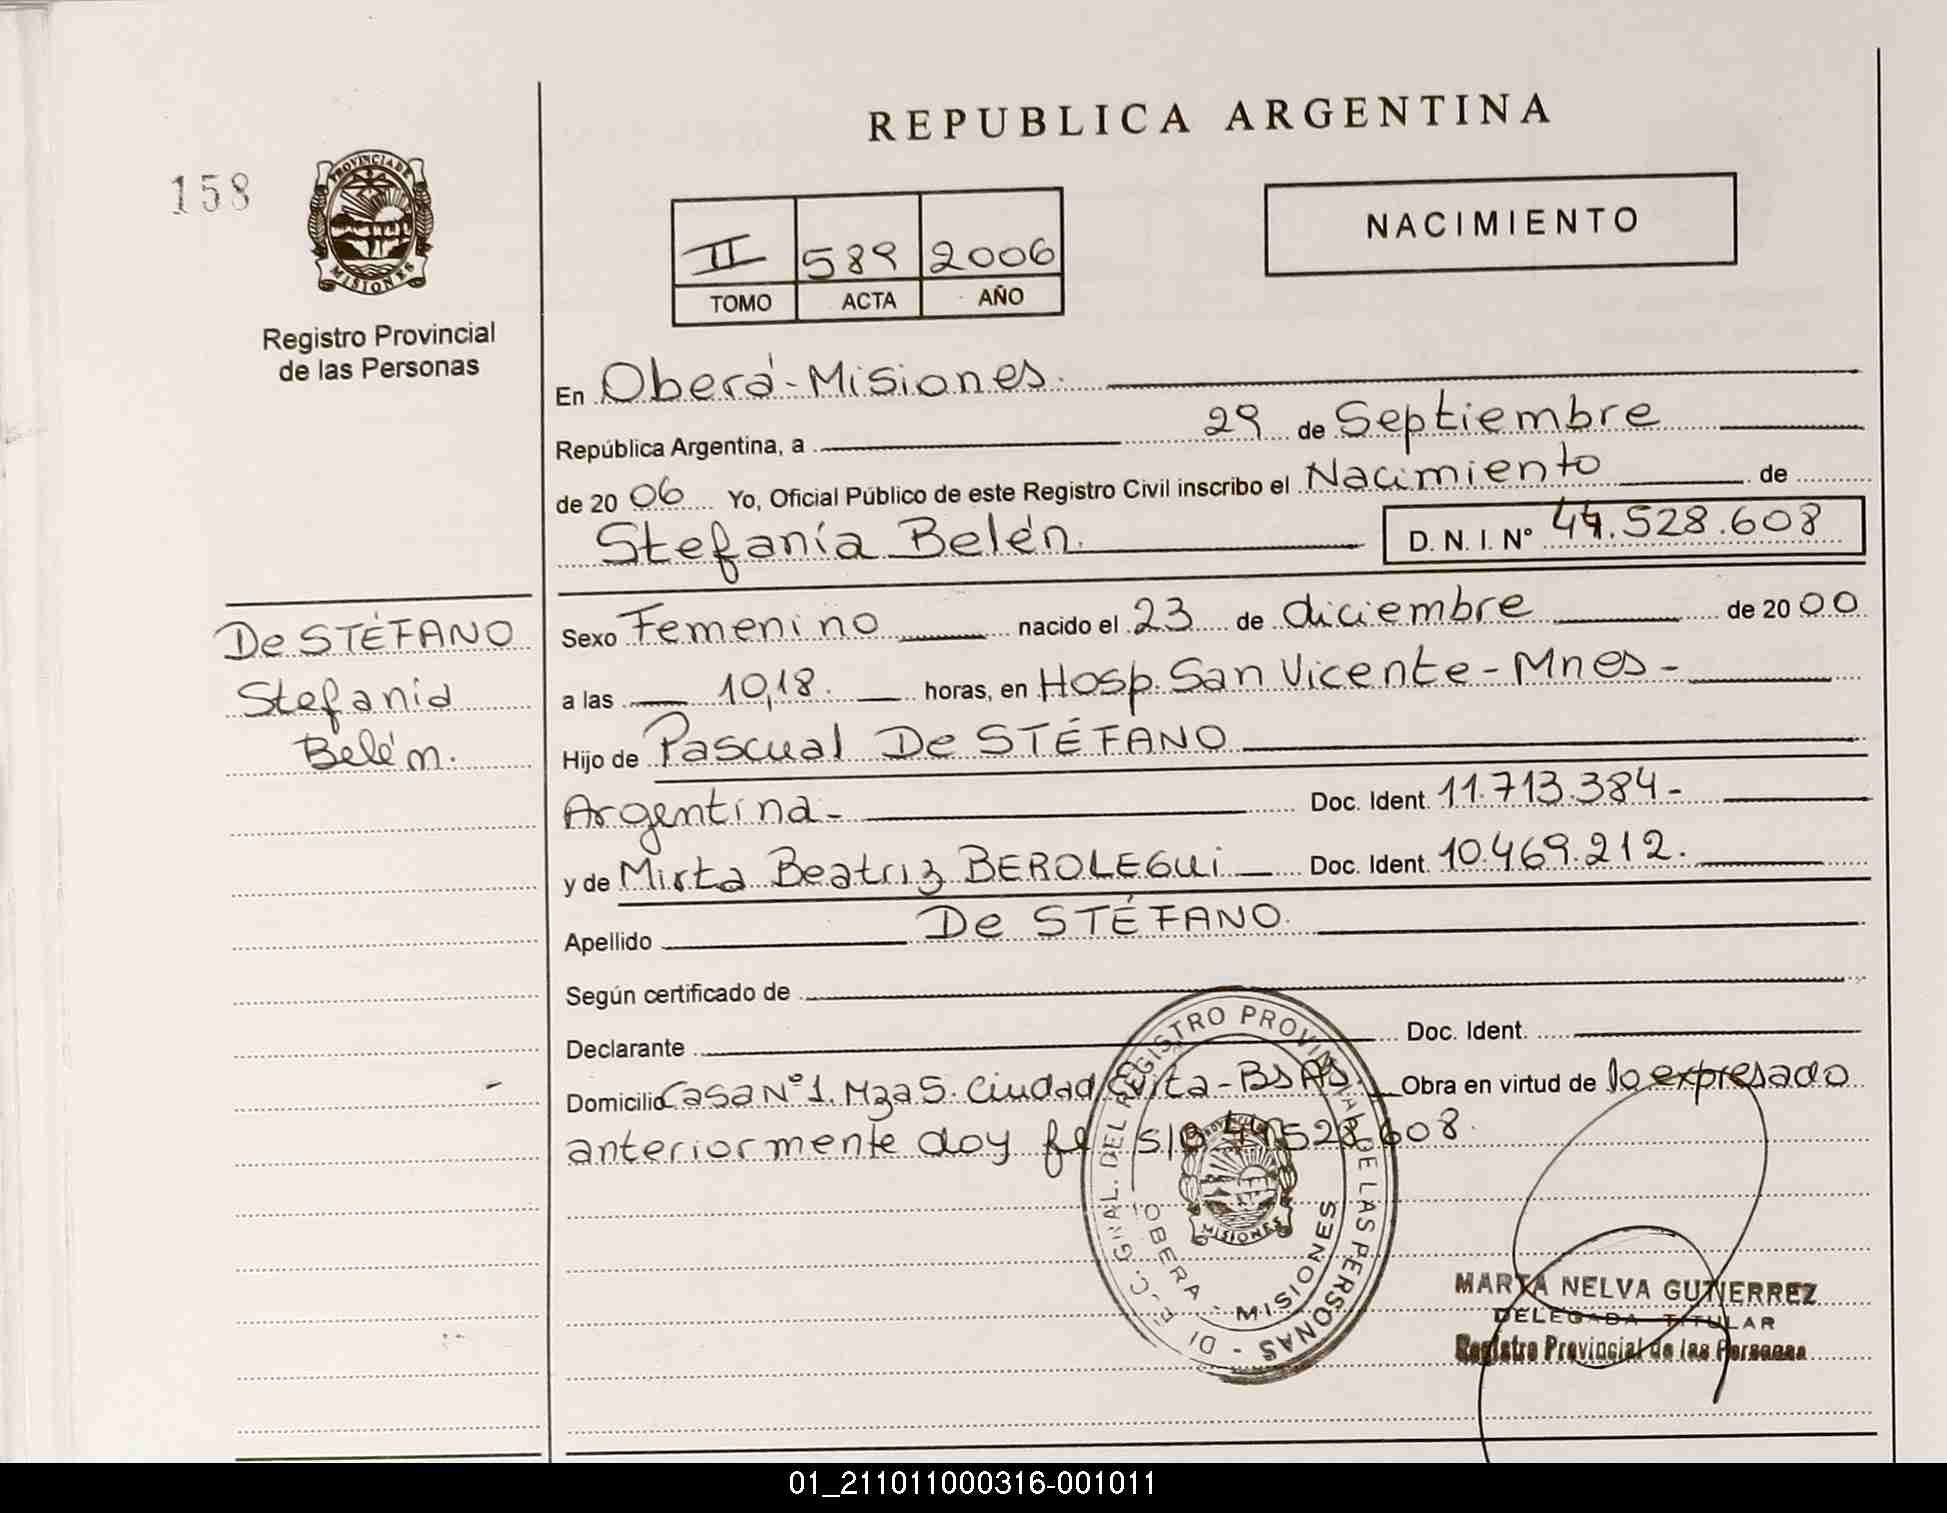 REPUBLICA ARGENTINA
158
PROVINCIA DE
MISIONES
Registro Provincial
de las Personas
II 589 2006
TOMO ACTA AÑO
NACIMIENTO
En Oberá-Misiones.
República Argentina, a 29 de Septiembre
de 20 06 Yo, Oficial Público de este Registro Civil inscribo el Nacimiento de
Stefanía Belén. D. N. I. Nº 44.528.608
De STÉFANO
Stefanía
Belén.
Sexo Femenino nacido el 23 de diciembre de 20 00
a las 10,18. horas, en Hosp. San Vicente - Mnes -
Hijo de Pascual De STÉFANO
Argentina - Doc. Ident. 11.713.384-
y de Mirta Beatriz BEROLEGUi Doc. Ident. 10.469.212.
Apellido De STÉFANO.
Según certificado de
Declarante Doc. Ident.
Domicilio Casa Nº 1. Mza 5. Ciudad Evita - Bs As. Obra en virtud de lo expresado
anteriormente doy fe S/B 44.528.608.
REGISTRO PROVINCIAL DE LAS PERSONAS
OBERA - MISIONES
MISIONES
MARTA NELVA GUTIERREZ
DELEGADA TITULAR
Registro Provincial de las Personas
01_211011000316-001011